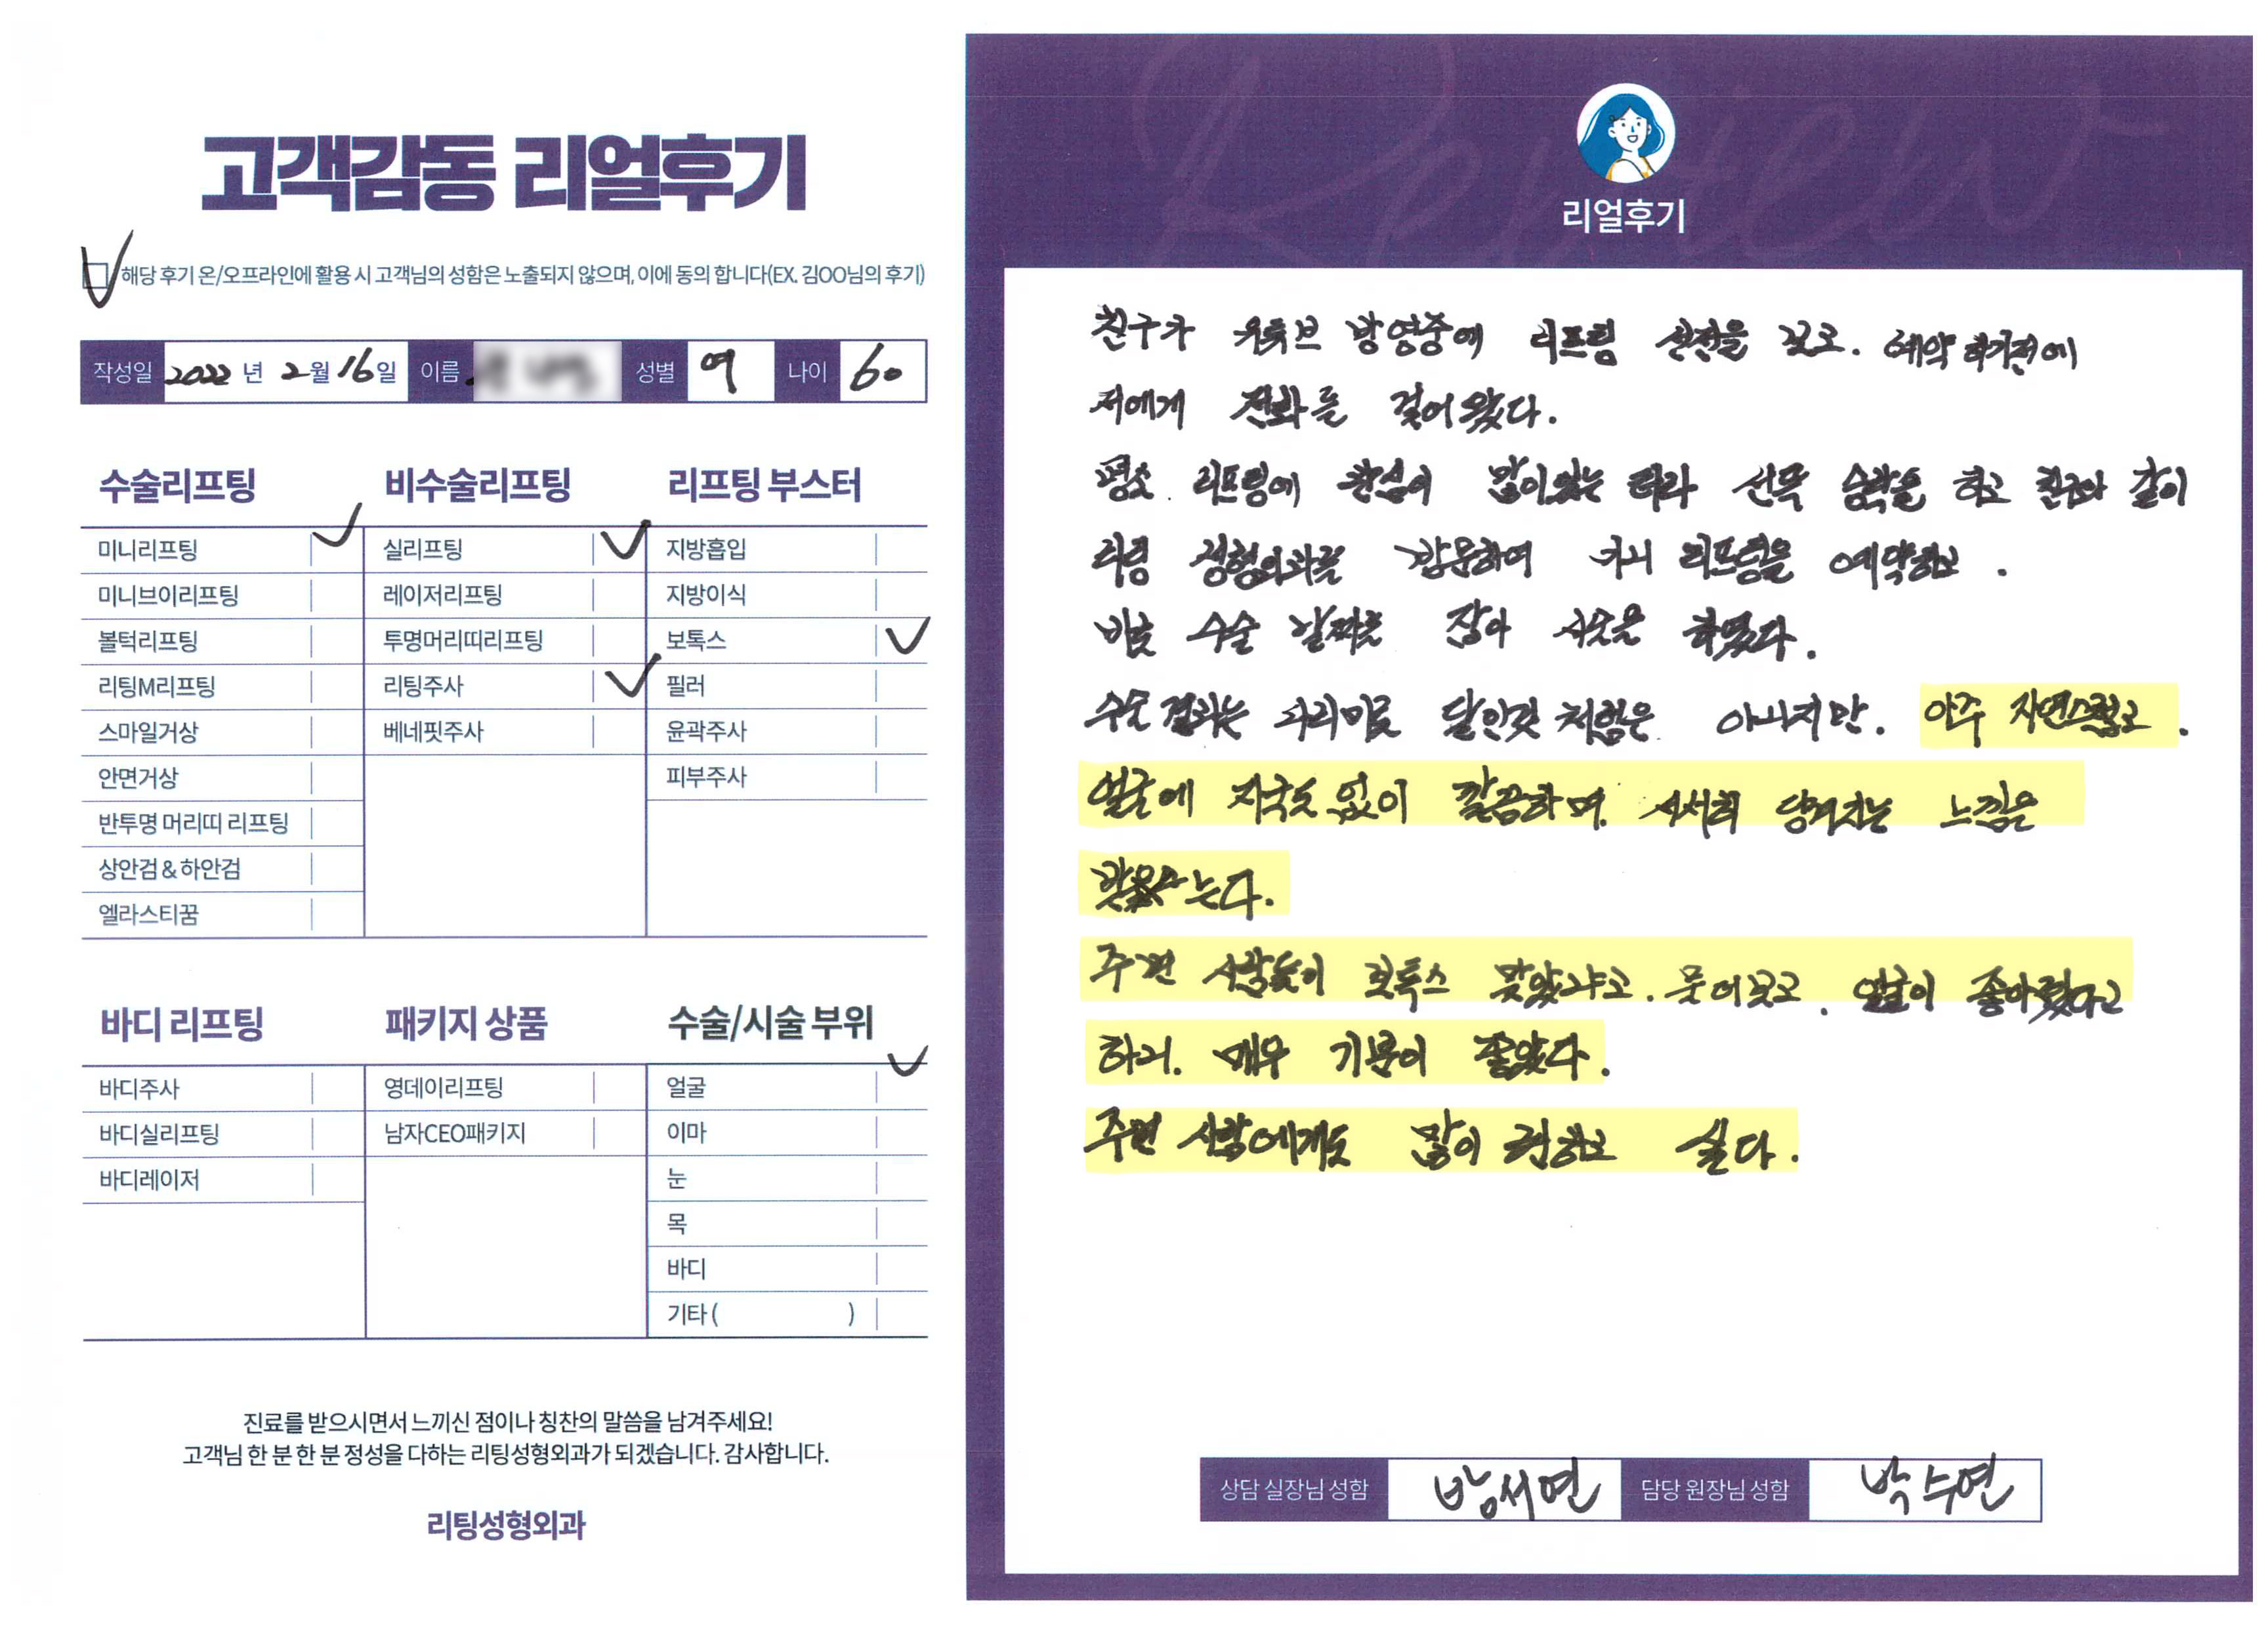 고객감동 리얼후기
해당 후기 온/오프라인에 활용 시 고객님의 성함은 노출되지 않으며, 이에 동의 합니다(EX. 김OO님의 후기)
작성일 2022 년 2 월 16 일 이름 성별 여 나이 60
수술리프팅
미니리프팅
미니브이리프팅
볼턱리프팅
리팅M리프팅
스마일거상
안면거상
반투명 머리띠 리프팅
상안검 & 하안검
엘라스티꿈
비수술리프팅
실리프팅
레이저리프팅
투명머리띠리프팅
리팅주사
베네핏주사
리프팅 부스터
지방흡입
지방이식
보톡스
필러
윤곽주사
피부주사
바디 리프팅
바디주사
바디실리프팅
바디레이저
패키지 상품
영데이리프팅
남자CEO패키지
수술/시술 부위
얼굴
이마
눈
목
바디
기타 ( )
진료를 받으시면서 느끼신 점이나 칭찬의 말씀을 남겨주세요!
고객님 한 분 한 분 정성을 다하는 리팅성형외과가 되겠습니다. 감사합니다.
리팅성형외과
Review
리얼후기
친구가 유튜브 방영중에 리프팅 선전을 보고. 예약하기전에
저에게 전화를 걸어왔다.
평소 리프팅에 관심이 많이있는 터라 선뜻 승락을 하고 친구와 같이
리팅 성형외과를 방문하여 미니 리프팅을 예약하고.
바로 수술 날짜를 잡아 시술을 하였다.
수술결과는 다리미로 달인것 처럼은 아니지만. 아주 자연스럽고.
얼굴에 자국도 없이 깔끔하며. 서서히 당겨지는 느낌은
는다.
주변 사람들이 보톡스 맞았냐고. 물어보고. 얼굴이 좋아졌다고
하니. 매우 기분이 좋았다.
주변 사람에게도 많이 권하고 싶다.
상담 실장님 성함 방서연 담당 원장님 성함 박수연